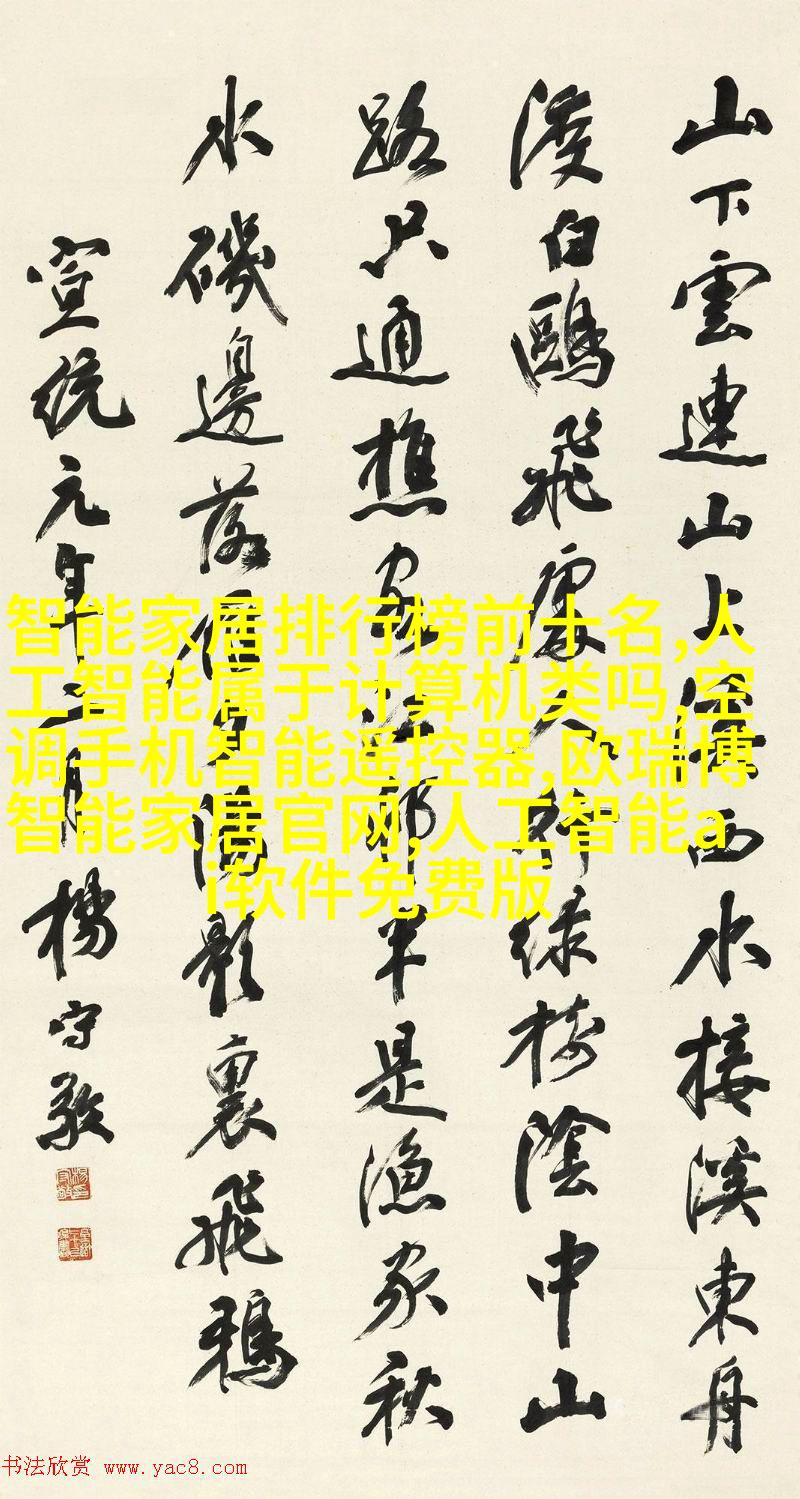 山下雲連山上溪西水接溪東舟
渡白鷗飛處人行綠樹陰中山
路只通樵客江邨半是漁家秋
水磯邊落雁夕陽影裏飛鴉
宣統元年二月楊守敬
智能家居排行榜前十名,人
工智能属于计算机类吗,空
调手机智能遥控器,欧瑞博
智能家居官网,人工智能a
i软件免费版
书法欣赏 www.yac8.com